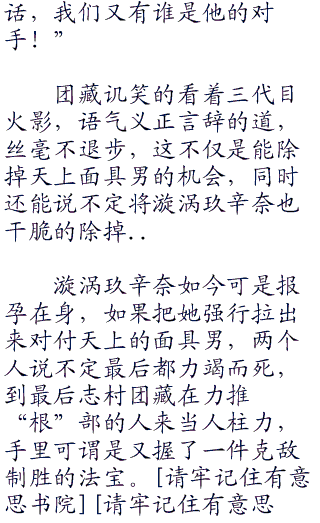 话，我们又有谁是他的对
手！”
团藏讥笑的看着三代目
火影，语气义正言辞的道，
丝毫不退步，这不仅是能除
掉天上面具男的机会，同时
还能说不定将漩涡玖辛奈也
干脆的除掉..
漩涡玖辛奈如今可是报
孕在身，如果把她强行拉出
来对付天上的面具男，两个
人说不定最后都力竭而死，
到最后志村团藏在力推
“根”部的人来当人柱力，
手里可谓是又握了一件克敌
制胜的法宝。[请牢记住有意
思书院][请牢记住有意思